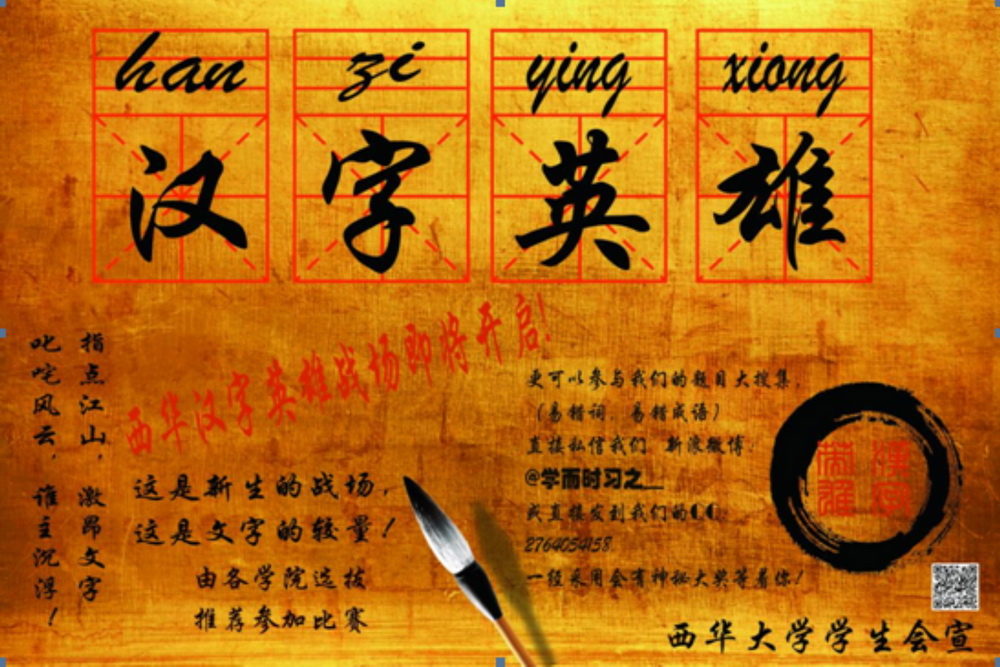 han zi ying xiong
汉字英雄
西华汉字英雄战场即将开启!
指点江山，激昂文字
叱咤风云，谁主沉浮！
这是新生的战场，
这是文字的较量！
由各学院选拔
推荐参加比赛
更可以参与我们的题目大搜集，
（易错词、易错成语）
直接私信我们 新浪微博：
@学而时习之__
或直接发到我们的QQ：
2764054158
一经采用会有神秘大奖等着你！
漢字英雄
西华大学学生会宣